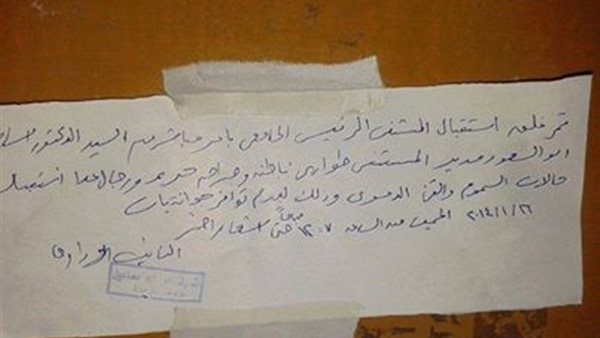 تم غلق استقبال المستشفى الرئيسى الجامعى بأمر مباشر من السيد الدكتور
ابو السعود مدير المستشفى طوارئ باطنة وجراحه حريم ورجال عدا استقبال
حالات السموم والقئ الدموى وذلك لعدم توافر جوانتيات
٢٠١٤/١/٢٦ من الساعه ١٢.٧ صباحاً حتى اشعار اخر
النائب